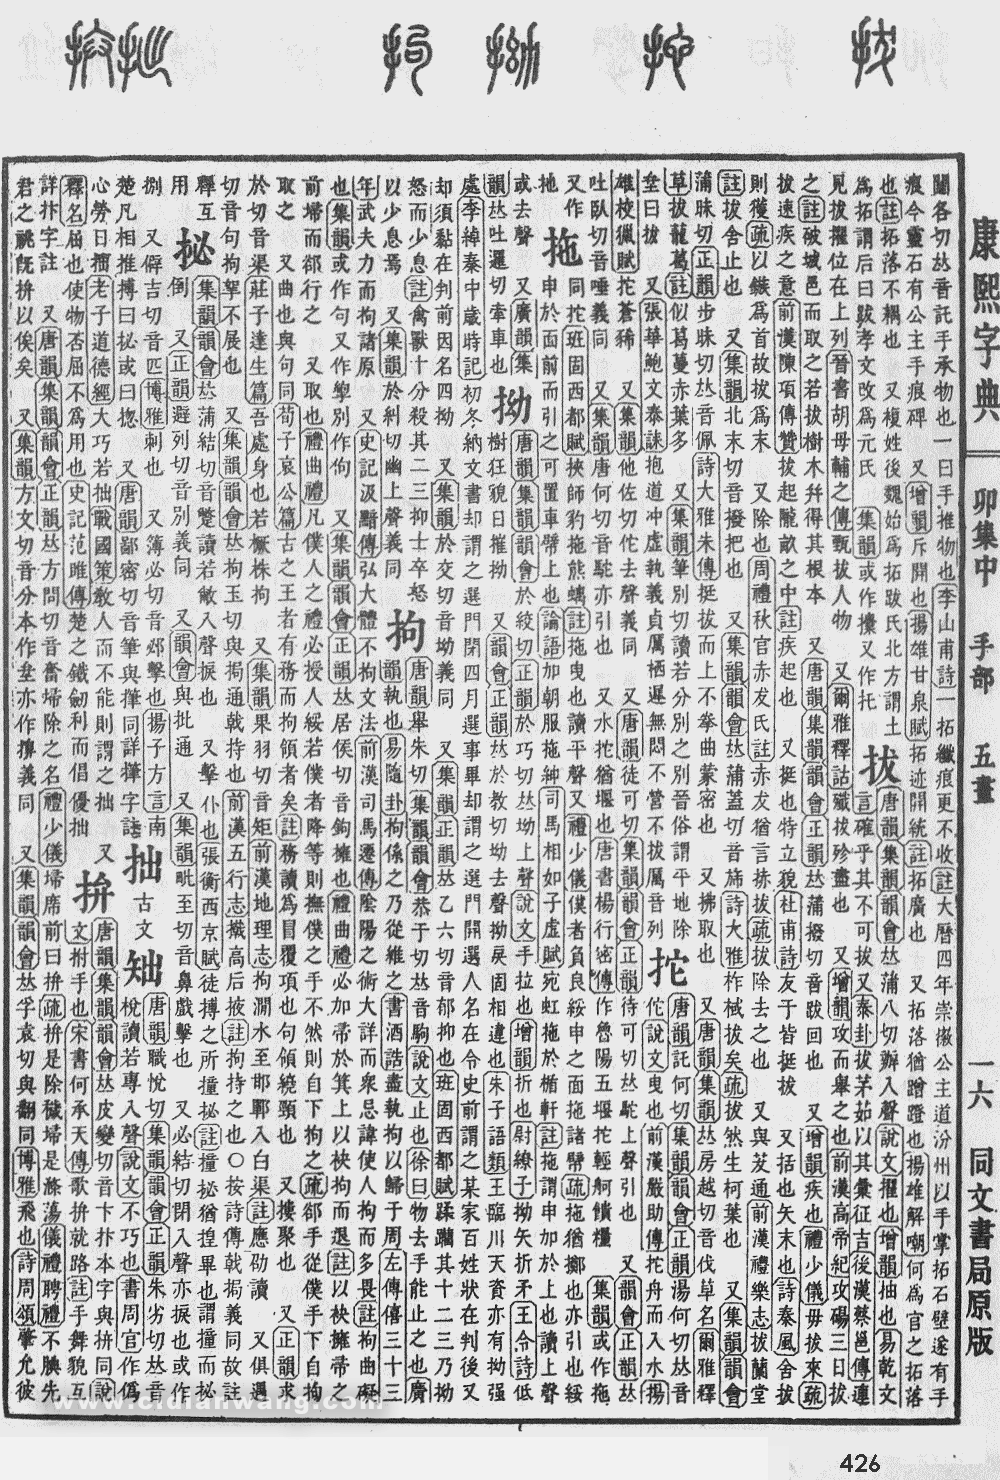 康熙字典
卯集中 手部 五畫
一六 同文書局原版
闥各切𠀤音託手承物也一曰手推物也李山甫詩一拓纖痕更不收註大曆四年崇徽公主道汾州以手掌拓石壁遂有手
痕今靈石有公主手痕碑 又增韻斥開也揚雄甘泉賦拓迹開統註拓廣也 又拓落猶蹭蹬也揚雄解嘲何爲官之拓落
也註拓落不耦也 又複姓後魏始爲拓跋氏北方謂土
爲拓謂后曰跋孝文改爲元氏 集韻或作攗又作托
拔
唐韻集韻韻會𠀤蒲八切辦入聲說文擢也增韻抽也易乾文
言確乎其不可拔又泰卦拔茅茹以其彙征吉後漢蔡邕傳連
見拔擢位在上列晉書胡毋輔之傳甄拔人物 又爾雅釋詁殲拔殄盡也 又增韻攻而舉之也前漢高帝紀攻碭三日拔
之註破城邑而取之若拔樹木幷得其根本 又唐韻集韻韻會正韻𠀤蒲撥切音跋回也 又增韻疾也禮少儀毋拔來疏
拔速疾之意前漢陳項傳贊拔起隴畝之中註疾起也 又挺也特立貌杜甫詩友于皆挺拔 又括也矢末也詩秦風舍拔
則獲疏以鏃爲首故拔爲末 又除也周禮秋官赤犮氏註赤犮猶言捇拔疏拔除去之也 又與茇通前漢禮樂志拔蘭堂
註拔舍止也 又集韻北末切音撥把也 又集韻韻會𠀤蒲蓋切音旆詩大雅柞棫拔矣疏拔然生柯葉也 又集韻韻會
蒲昧切正韻步昧切𠀤音佩詩大雅朱傳挺拔而上不拳曲蒙密也 又拂取也 又唐韻集韻𠀤房越切音伐草名爾雅釋
草拔蘢葛註似葛蔓赤葉多 又集韻筆別切讀若分別之別晉俗謂平地除
壘曰拔 又張華鮑文泰誄抱道冲虛執義貞厲栖遲無悶不營不拔厲音列
拕
唐韻託何切集韻韻會正韻湯何切𠀤音
佗說文曳也前漢嚴助傳拕舟而入水揚
雄校獵賦拕蒼豨 又集韻他佐切佗去聲義同 又唐韻徒可切集韻韻會正韻待可切𠀤駝上聲引也 又韻會正韻𠀤
吐臥切音唾義同 又集韻唐何切音駝亦引也 又水拕猶堰也唐書楊行密傳作魯陽五堰拕輕舸饋糧 集韻或作拖
又作扡
拖
同拕班固西都賦挾師豹拖熊螭註拖曳也讀平聲又禮少儀僕者負良綏申之面拖諸幦疏拖猶擲也亦引也綏
申於面前而引之可置車幦上也論語加朝服拖紳司馬相如子虛賦宛虹拖於楯軒註拖謂申加於上也讀上聲
或去聲 又廣韻集
韻𠀤吐邏切牽車也
拗
唐韻集韻韻會於絞切正韻於巧切𠀤坳上聲說文手拉也增韻折也尉繚子拗矢折矛王令詩低
樹狂猊日摧拗 又韻會正韻𠀤於教切坳去聲拗戾固相違也朱子語類王臨川天資亦有拗强
處李綽秦中歲時記初冬納文書却謂之選門閉四月選事畢却謂之選門開選人名在令史前謂之某家百姓狀在判後又
却須黏在判前因名四拗 又集韻於交切音坳義同 又集韻正韻𠀤乙六切音郁抑也班固西都賦蹂躪其十二三乃拗
怒而少息註禽獸十分殺其二三抑士卒怒
以少息焉 又集韻於糾切幽上聲義同
拘
唐韻舉朱切集韻韻會恭于切𠀤音駒說文止也徐曰物去手能止之也廣
韻執也易隨卦拘係之乃從維之書酒誥盡執拘以歸于周左傳僖三十三
年武夫力而拘諸原 又史記汲黯傳弘大體不拘文法前漢司馬遷傳陰陽之術大詳而衆忌諱使人拘而多畏註拘曲礙
也集韻或作句又作㡱別作佝 又集韻韻會正韻𠀤居侯切音鉤擁也禮曲禮必加帚於箕上以袂拘而退註以袂擁帚之
前埽而郤行之 又取也禮曲禮凡僕人之禮必授人綏若僕者降等則撫僕之手不然則自下拘之疏郤手從僕手下自拘
取之 又曲也與句同荀子哀公篇古之王者有務而拘領者矣註務讀爲冒覆項也句領繞頸也 又摟聚也 又正韻求
於切音渠莊子達生篇吾處身也若橛株拘 又集韻果羽切音矩前漢地理志拘澗水至邯鄲入白渠註應劭讀 又俱遇
切音句拘挐不展也 又集韻韻會𠀤拘玉切與挶通戟持也前漢五行志檝高后掖註拘持之也○按詩傳戟挶義同故註
釋互
用
㧙
集韻韻會𠀤蒲結切音蹩讀若敝入聲捩也 又擊仆也張衡西京賦徒搏之所撞㧙註撞㧙猶揘畢也謂撞而㧙
倒 又正韻避列切音別義同 又韻會與批通 又集韻毗至切音鼻戲擊也 又必結切閉入聲亦捩也或作
捌 又僻吉切音匹博雅刺也 又簿必切音邲擊也揚子方言南
楚凡相推搏曰㧙或曰㧾 又唐韻鄙密切音筆與㩏同詳㩏字註
拙
古文
𥐊
唐韻職悅切集韻韻會正韻朱劣切𠀤音
梲讀若專入聲說文不巧也書周官作僞
心勞日拙老子道德經大巧若拙戰國策敎人而不能則謂之拙 又
釋名屈也使物否屈不爲用也史記范雎傳楚之鐵劒利而倡優拙
拚
唐韻集韻韻會𠀤皮變切音卞抃本字與拚同說
文拊手也宋書何承天傳歌拚就路註手舞貌互
詳抃字註 又唐韻集韻韻會正韻𠀤方問切音奮埽除之名禮少儀埽席前曰拚疏拚是除穢埽是滌蕩儀禮聘禮不腆先
君之祧旣拚以俟矣 又集韻方文切音分本作坌亦作攩義同 又集韻韻會𠀤孚袁切與翻同博雅飛也詩周頌肇允彼
www.cidianwang.com
426